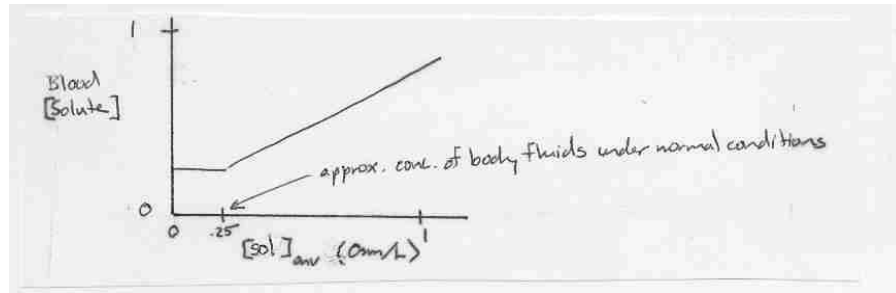 1
Blood
[Solute]
approx. conc. of body fluids under normal conditions
0
0 .25 1
[sol]env (Osm/L)